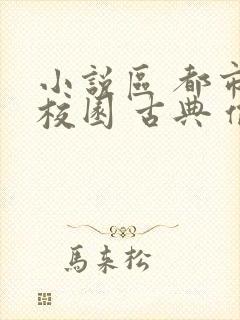 小說區 都市
校園 古典
馬來松